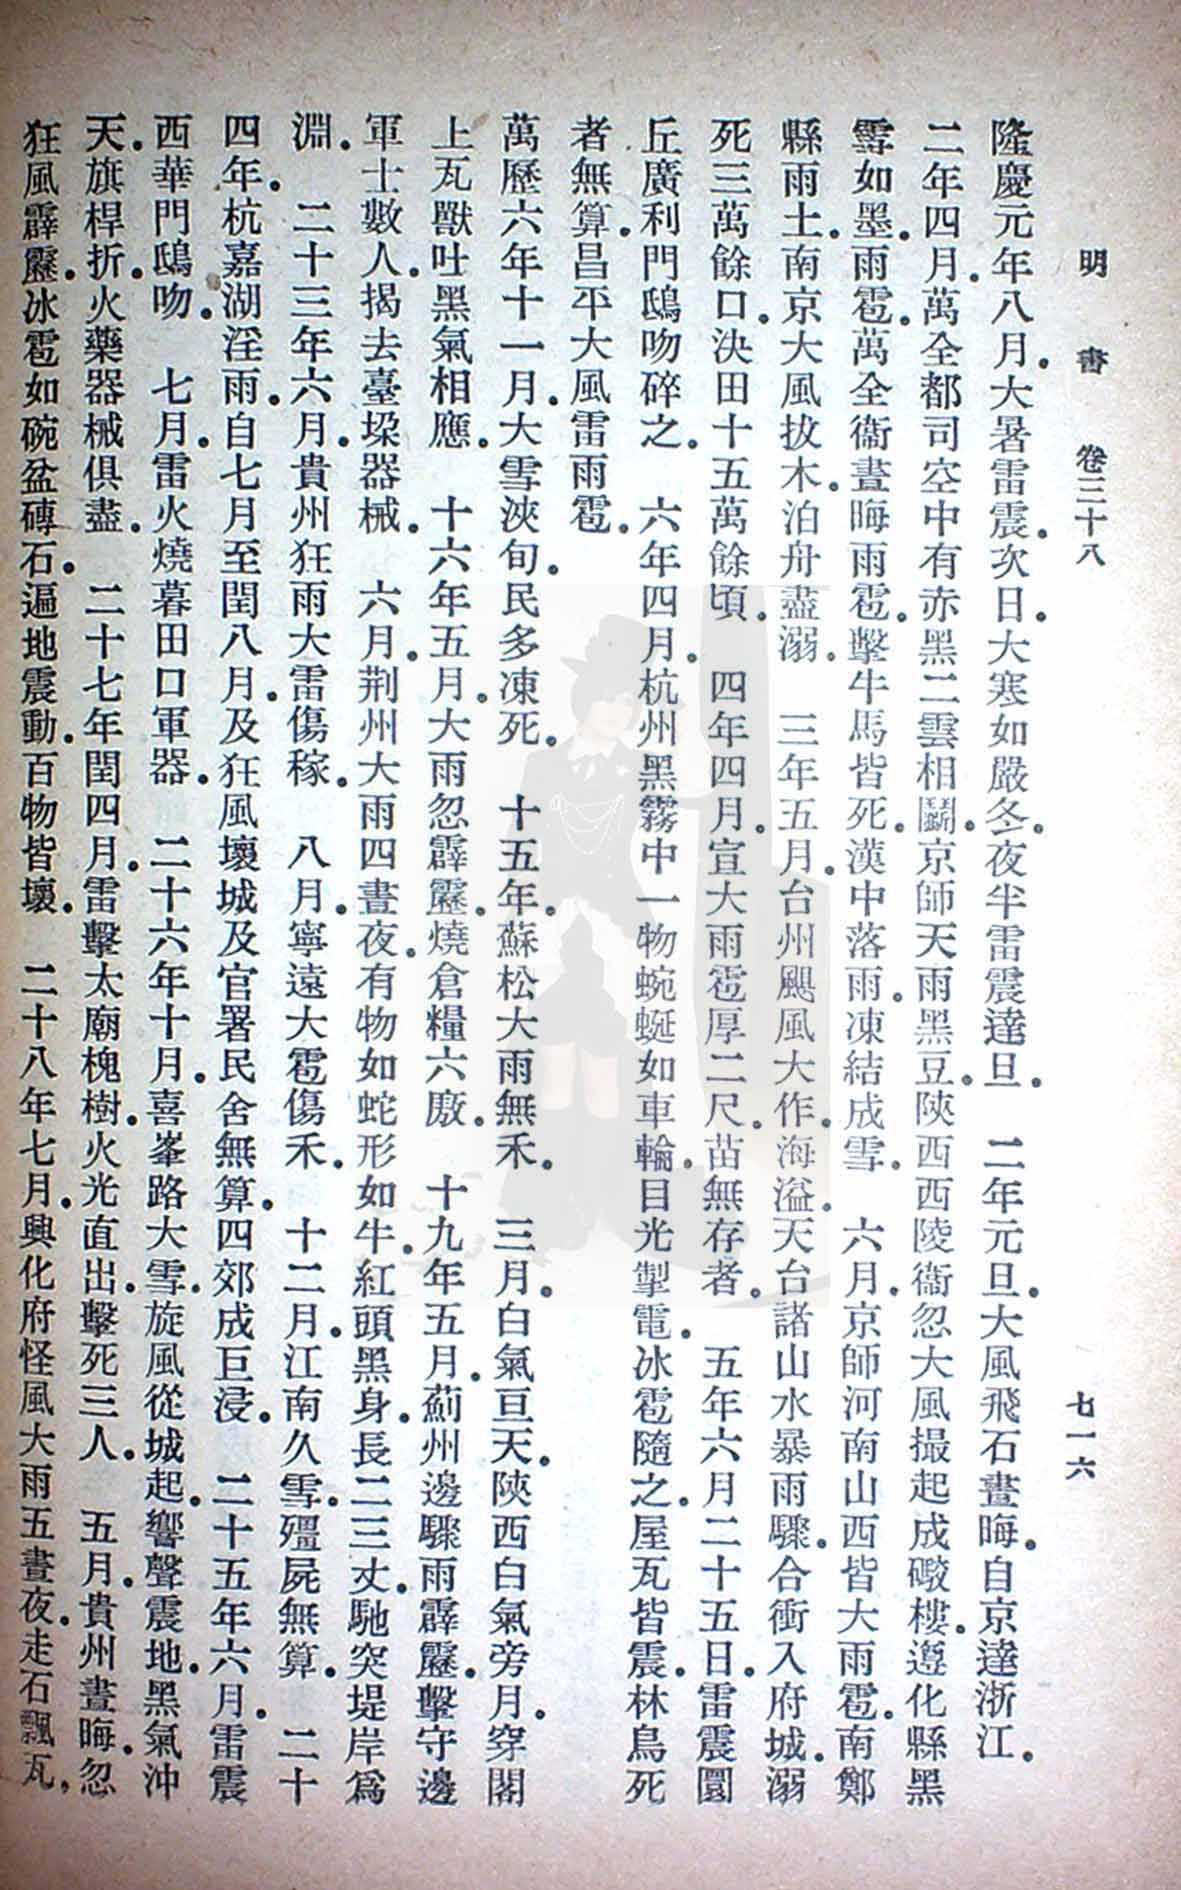 明書　卷三十八　七一六
隆慶元年八月．大暑雷震．次日．大寒如嚴冬．夜半雷震達旦．　二年元旦．大風飛石晝晦．自京達浙江．
二年四月．萬全都司空中有赤黑二雲相鬭．京師天雨黑豆．陝西西陵衞忽大風撮起成礮樓．遵化縣黑
雪如墨．雨雹．萬全衞晝晦雨雹．擊牛馬皆死．漢中落雨．凍結成雪．　六月．京師河南山西皆大雨雹．南鄭
縣雨土．南京大風拔木．泊舟盡溺．　三年五月．台州颶風大作．海溢．天台諸山水暴雨驟．合衝入府城．溺
死三萬餘口．決田十五萬餘頃．　四年四月．宣大雨雹厚二尺．苗無存者．　五年六月二十五日．雷震圜
丘廣利門鴟吻碎之．　六年四月．杭州黑霧中一物蜿蜒如車輪．目光掣電．冰雹隨之．屋瓦皆震．林鳥死
者無算．昌平大風雷雨雹．
萬歷六年十一月．大雪浹旬．民多凍死．　十五年．蘇松大雨無禾．　三月．白氣亘天．陝西白氣旁月．穿閣
上瓦獸吐黑氣相應．　十六年五月．大雨忽霹靂．燒倉糧六廒．　十九年五月．薊州邊驟雨霹靂．擊守邊
軍士數人．揭去臺垜器械．　六月．荆州大雨四晝夜．有物如蛇形如牛．紅頭黑身．長二三丈．馳突堤岸爲
淵．　二十三年六月．貴州狂雨大雷傷稼．　八月．寧遠大雹傷禾．　十二月．江南久雪．殭屍無算．　二十
四年．杭嘉湖淫雨．自七月至閏八月．及狂風壞城及官署民舍無算．四郊成巨浸．　二十五年六月．雷震
西華門鴟吻．　七月．雷火燒暮田口軍器．　二十六年十月．喜峯路大雪．旋風從城起．響聲震地．黑氣沖
天．旗桿折．火藥器械俱盡．　二十七年閏四月．雷擊太廟槐樹．火光直出．擊死三人．　五月．貴州晝晦．忽
狂風霹靂．冰雹如碗盆磚石．遍地震動．百物皆壞．　二十八年七月．興化府怪風大雨五晝夜．走石飄瓦．